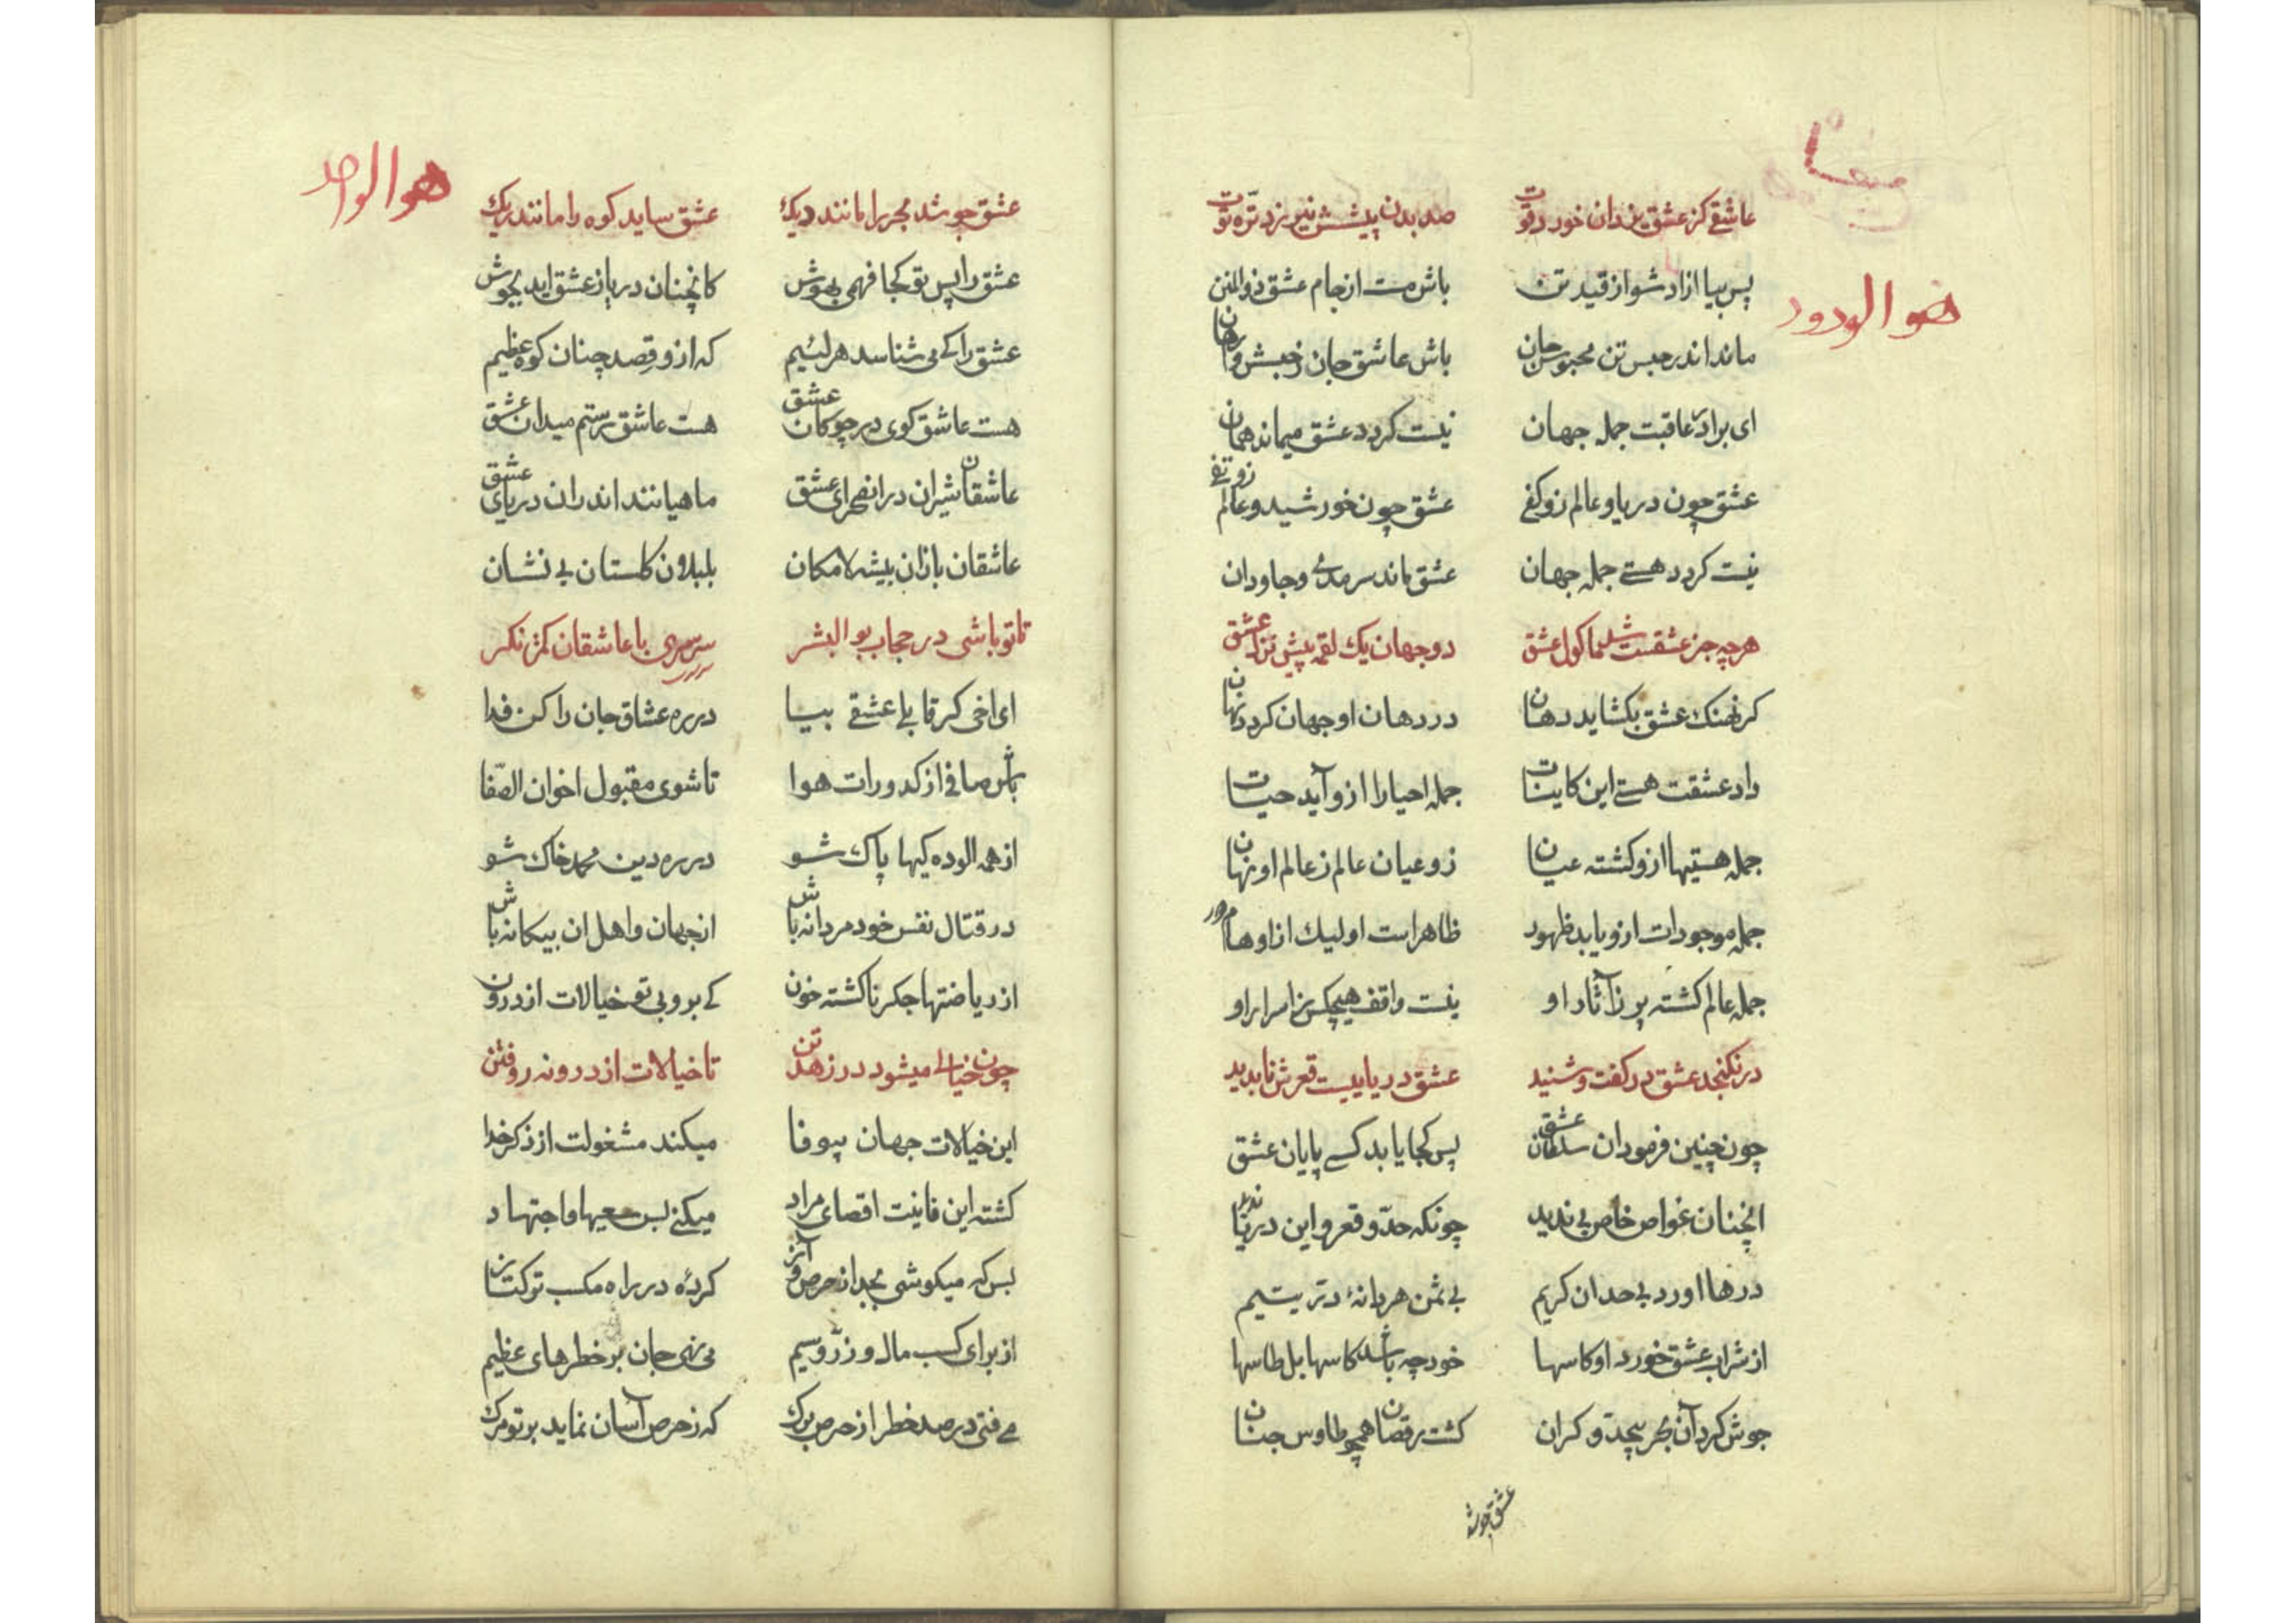 هو الودود
عاشقی کز عشق یزدان خورد قوت صد بدن پیشش نیرزد تره توت
پس بیا ازاد شو از قید تن باش مست از جام عشق ذوالمنن
ماند اندر حبس تن محبوس جان باش عاشق جان ز حبسش وارهان
ای برادر عاقبت جمله جهان نیست کردد عشق میماند همان
عشق چون دریا و عالم زو کفی عشق چون خورشید و عالم زو تفی
نیست کردد هستی جمله جهان عشق ماند سرمدی و جاودان
هرچه جز عشقست شد ماکول عشق دو جهان یک لقمه پیش نزل عشق
کر نهنک عشق بکشاید دهان در دهان او جهان کردد نهان
داد عشقت هستی این کاینات جمله احیا را ازو آید حیات
جمله هستیها ازو کشته عیان زو عیان عالم ز عالم او نهان
جمله موجودات ازو یابد ظهور ظاهر است او لیک از اوهام دور
جمله عالم کشته پر ز آثار او نیست واقف هیچکس ز اسرار او
در نکنجد عشق در کفت و شنید عشق دریاییست قعرش نابدید
چون چنین فرمود ان سلطان عشق پس کجا یابد کسی پایان عشق
انچنان غواص خاص بی ندید چونکه حد و قعر و این دریا ندید
درها اورد بی حد ان کریم بی ثمن هر دانهٔ در یتیم
از شراب عشق خورد او کاسها خود چه باشد کاسها بل طاسها
جوش کرد آن بحر بیحد و کران کشت رقصان همچو طاوس جنان
عشق جوشد
هو الواحد
عشق جوشد بحر را مانند دیک عشق ساید کوه را مانند ریک
عشق را پس تو کجا فهمی بهوش کانچنان دریا ز عشق اید بجوش
عشق را کی می شناسد هر لئیم که ازو رقصد چنان کوه عظیم
هست عاشق کوی در چوکان عشق هست عاشق رستم میدان عشق
عاشقان شیران در ان صحرای عشق ماهیانند اندران دریای عشق
عاشقان بازان بیشه لامکان بلبلان کلستان بی نشان
تا تو باشی در حجاب بوالبشر سرسری با عاشقان کمتر نکر
ای اخی کر قابلی عشقی بیا در ره عشاق جان را کن فدا
باش صافی از کدورات هوا تا شوی مقبول اخوان الصّفا
از همه الوده کیها پاک شو در ره دین محمد خاک شو
در قتال نفس خود مردانه باش از جهان و اهل ان بیکانه باش
از ریاضتها جکر ناکشته خون کی برو بی تو خیالات از درون
چون خیالی میشود در زهد تن تا خیالات از درونه روفتن
این خیالات جهان بیوفا میکند مشغولت از ذکر خدا
کشته این فانیت اقصای مراد میکنی بس سعیها و اجتهاد
بس که میکوشی بجد از حرص و آز کردهٔ در راه مکسب ترکتاز
از برای کسب مال و زر و سیم می نهی جان بر خطرهای عظیم
می فتی در صد خطر از حرص برک که ز حرص آسان نماید بر تو مرک